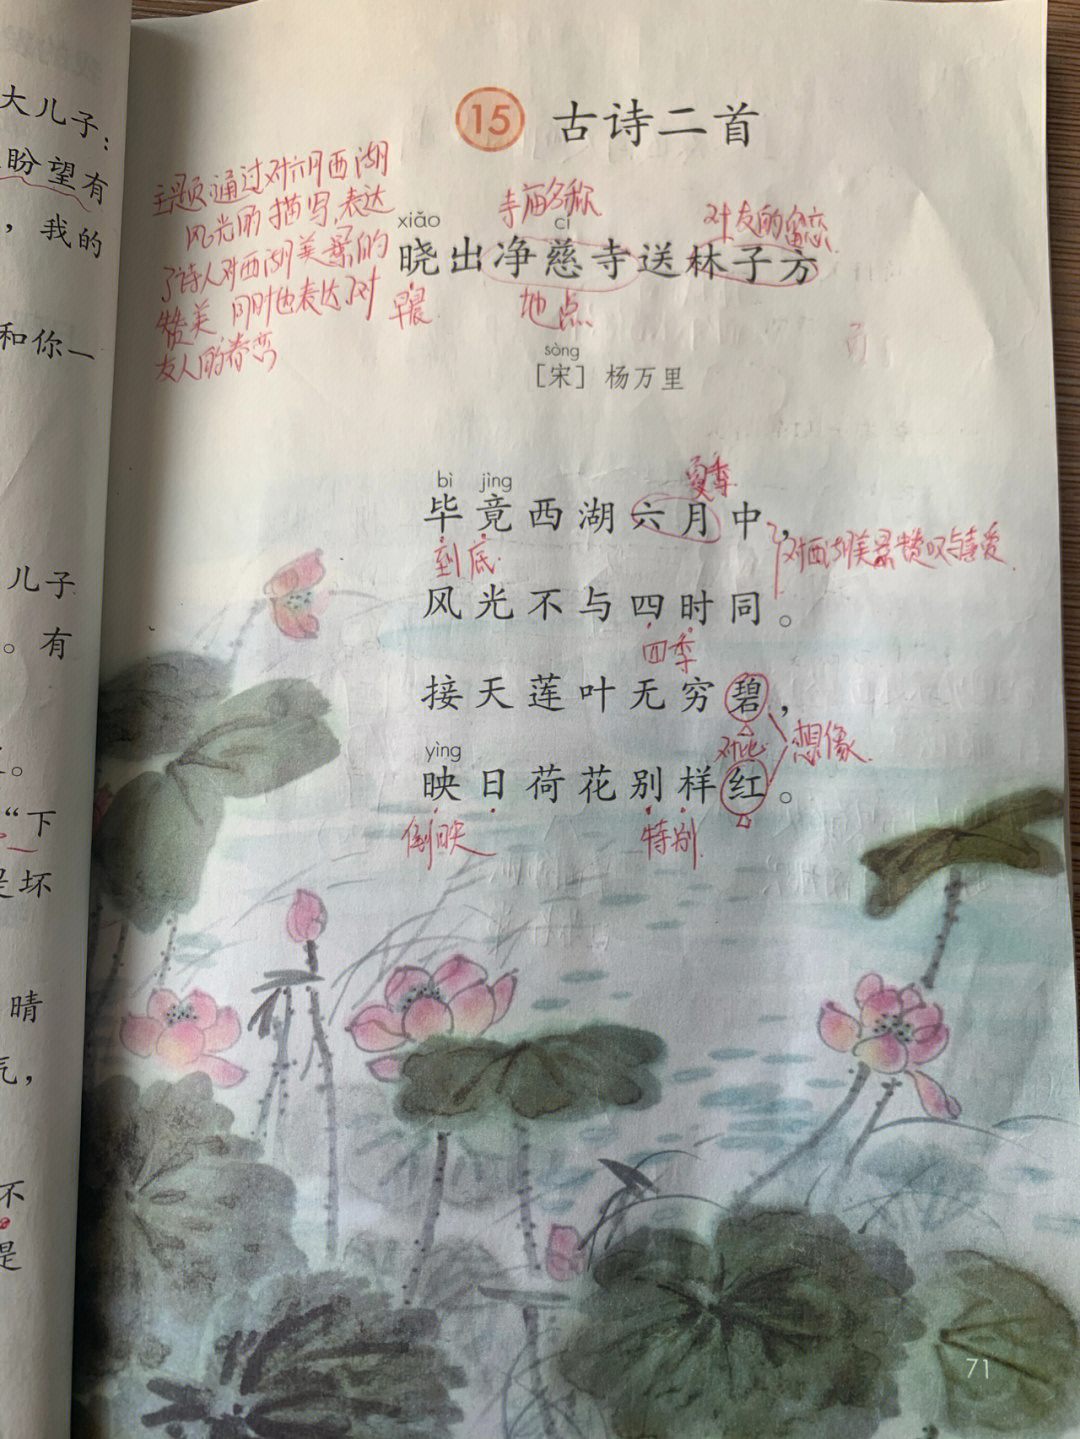 大儿子：
盼望有
，我的
和你一
儿子
。有
。
“下
是坏
晴
气，
不
是
15 古诗二首
主题通过对六月西湖
风光的描写,表达
了诗人对西湖美景的
赞美 同时也表达了对
友人的眷恋
寺庙名称
对友的留恋
xiǎo cí
晓出净慈寺送林子方
早晨 地点
sòng
［宋］杨万里
夏季
bì jìng
毕竟西湖六月中，
到底
对西湖美景赞叹与喜爱
风光不与四时同。
四季
接天莲叶无穷碧，
对比 想像
yìng
映日荷花别样红。
倒映 特别
71